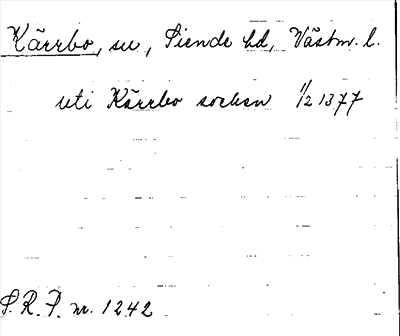 Kärrbo, sn, Siende hd, Västm. l.
uti Kärrbo sockn 11/2 1377
S. R. P. nr. 1242